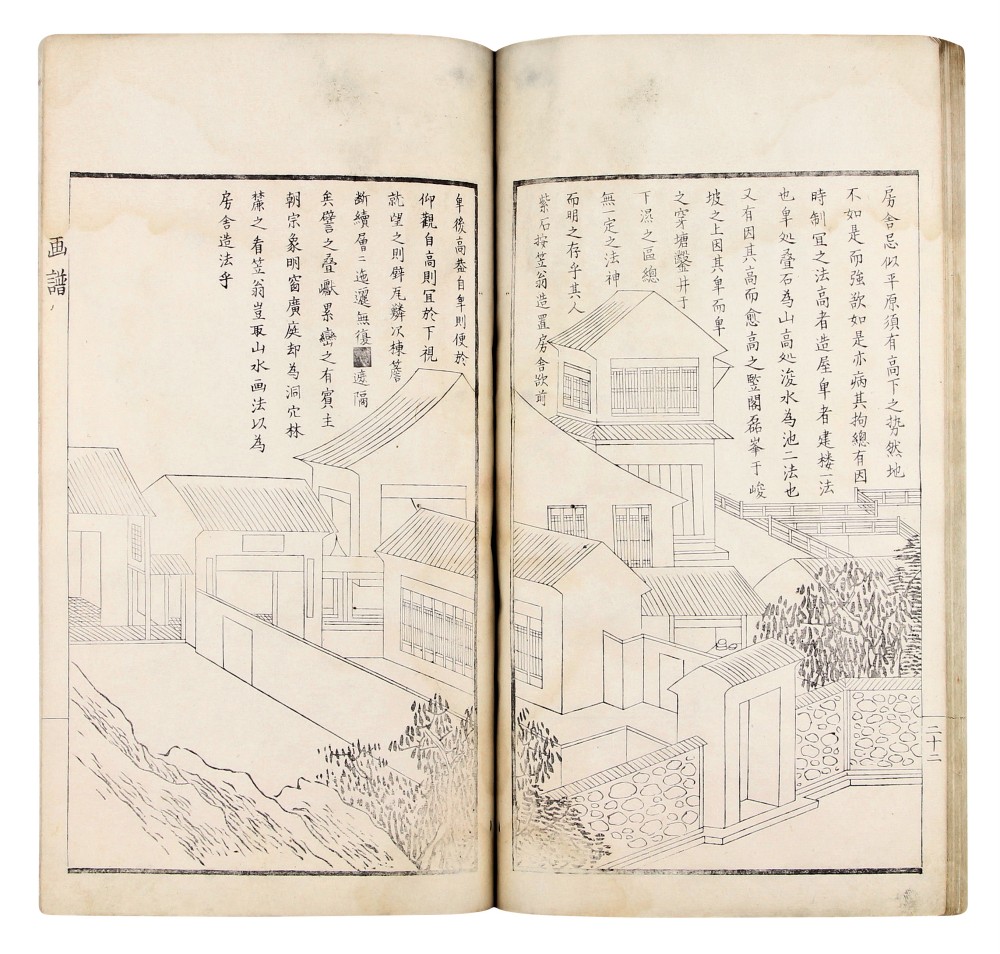 房舍忌似平原須有高下之势然地
不如是而強欲如是亦病其拘總有因
時制冝之法高者造屋卑者建楼一法
也卑処叠石為山高処浚水為池二法也
又有因其高而愈高之竪閣磊峯于峻
坡之上因其卑而卑
之穿塘鑿井于
下濕之區總
無一定之法神
而明之存乎其人
紫石按笠翁造置房舍欲前
卑後高葢自卑則便於
仰觀自高則冝於下視
就望之則甓瓦鱗次棟簷
断續層〻迤邐無復遮隔
矣譬之叠巘累巒之有賓主
朝宗象明窗廣庭却為洞穴林
麓之看笠翁豈取山水画法以為
房舍造法乎
画譜
二十二